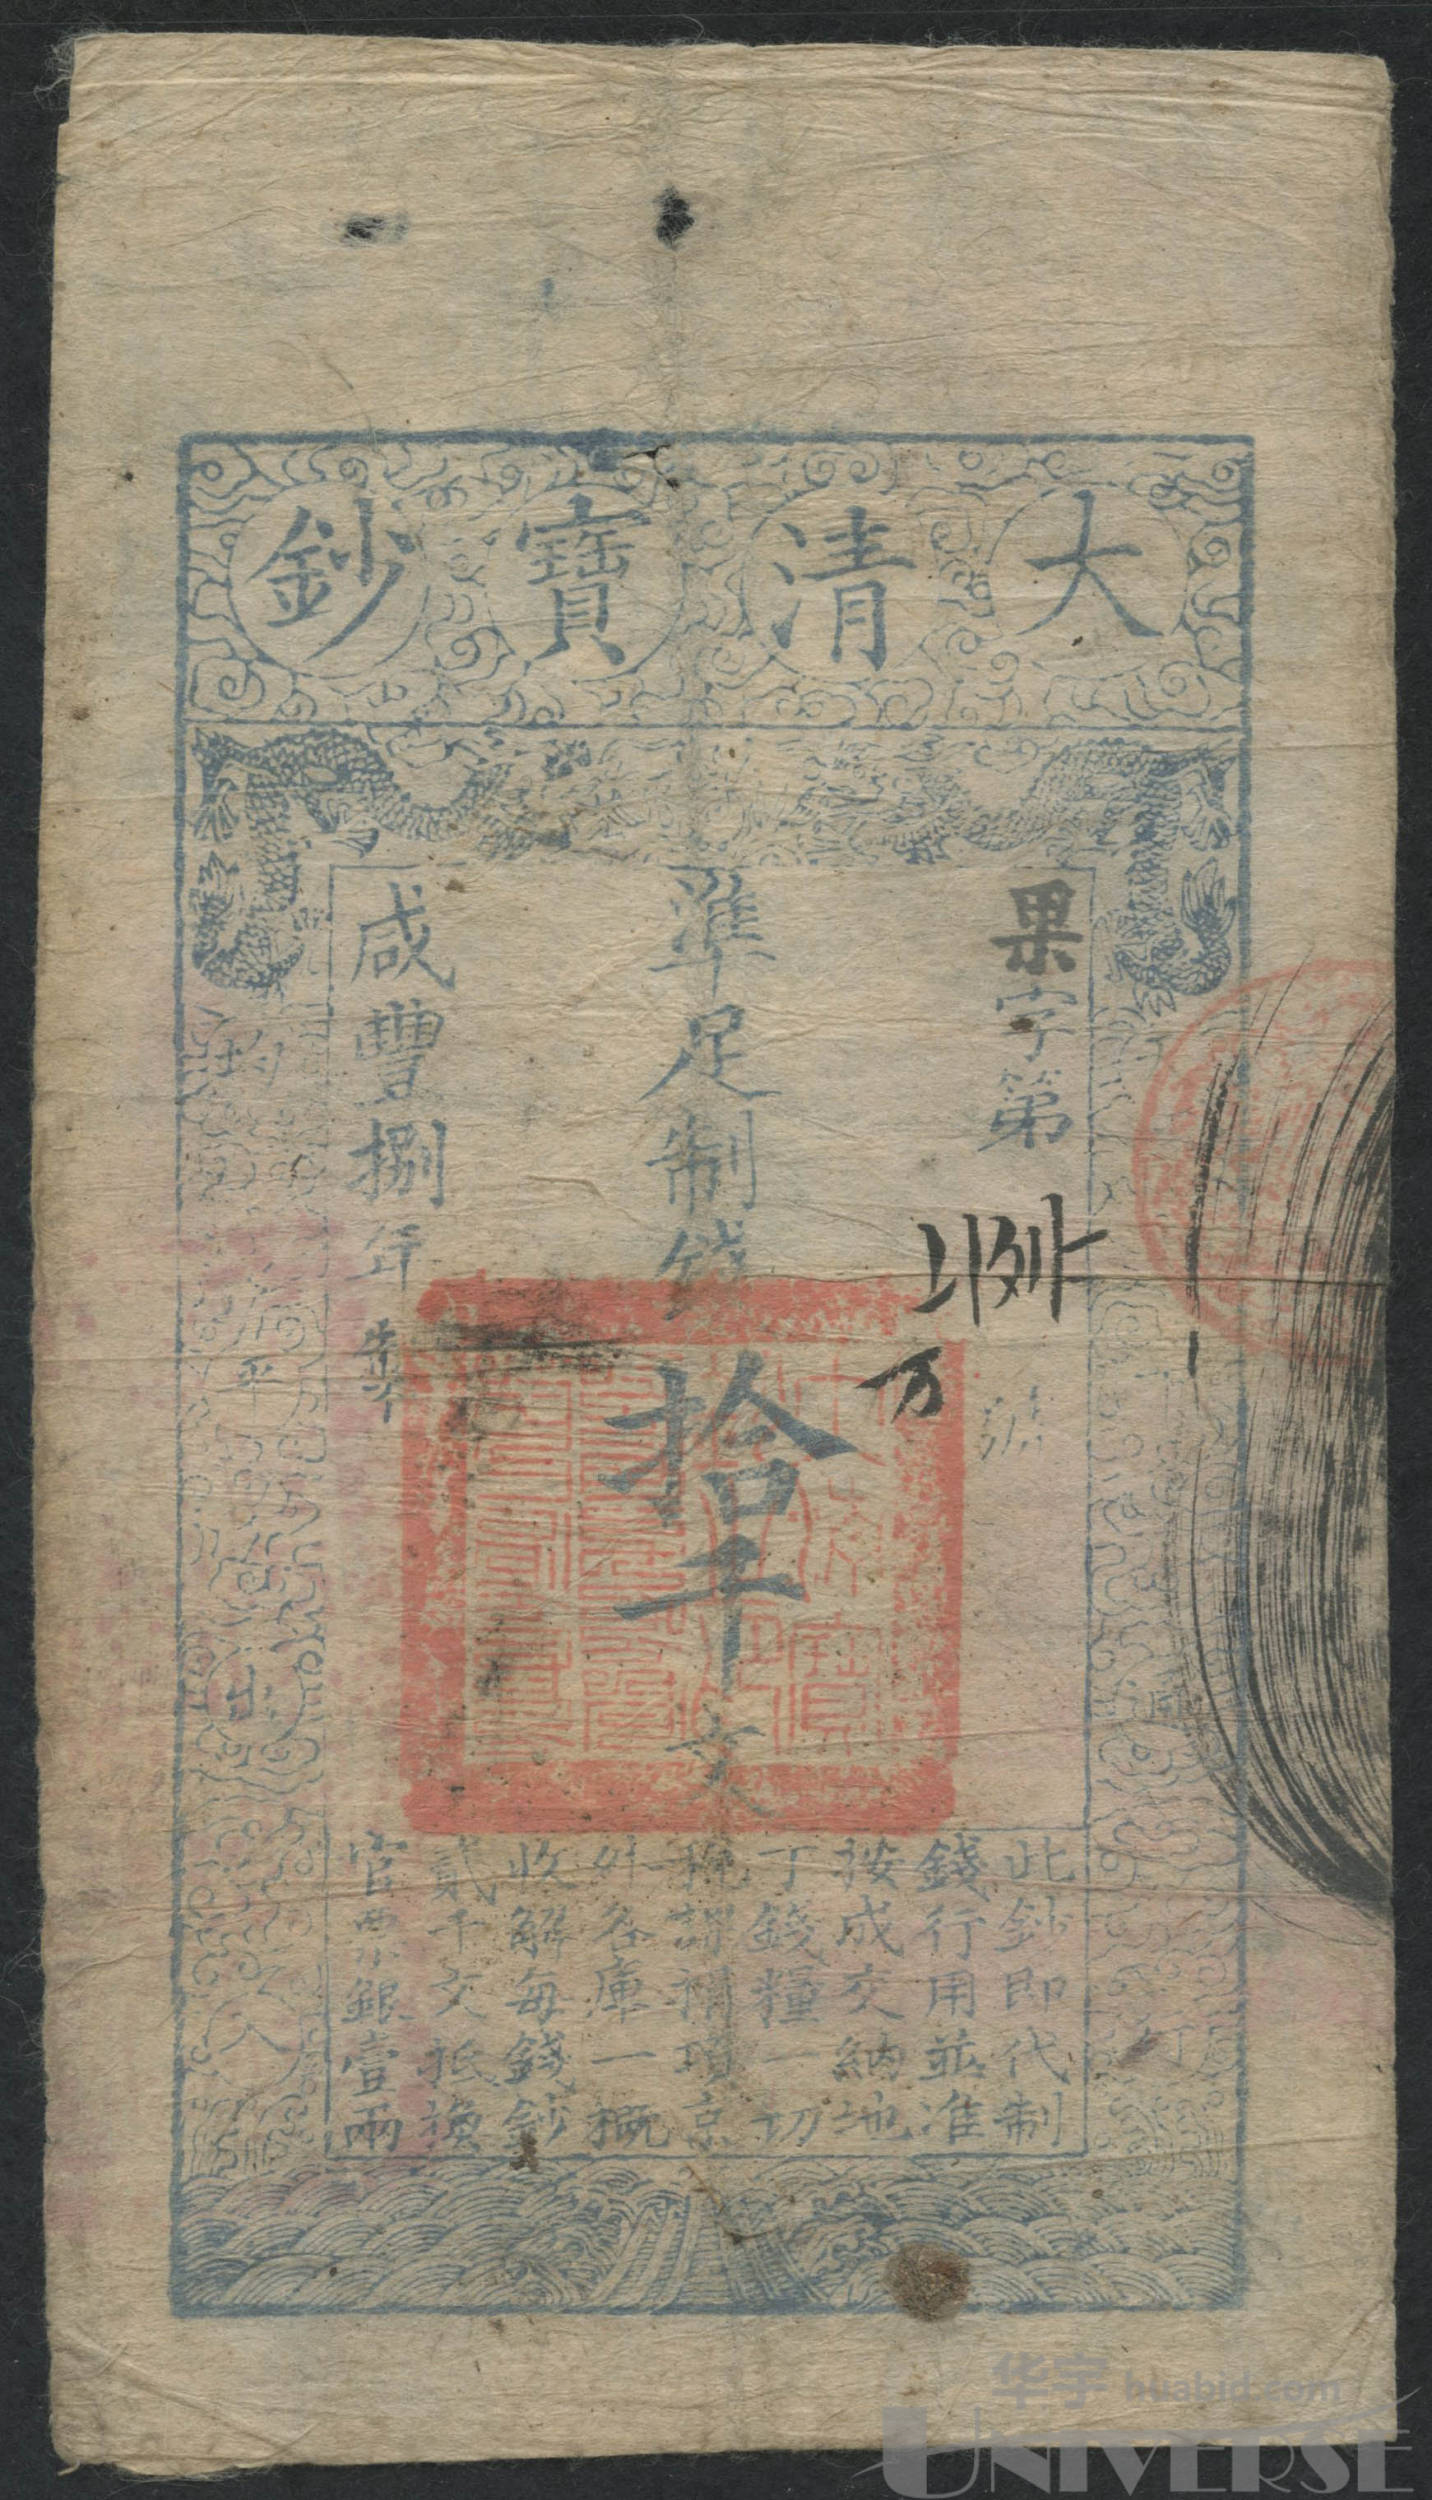 大清寶鈔
果字第
万
號
準足制錢拾千文
咸豐捌年製
此鈔即代制
錢行用並准
按成交納地
丁錢糧一切
稅課捐項京
外各庫一概
收解每錢鈔
貳千文抵換
官票銀壹兩
平
出
入
华宇 huabid.com
UNIVERSE